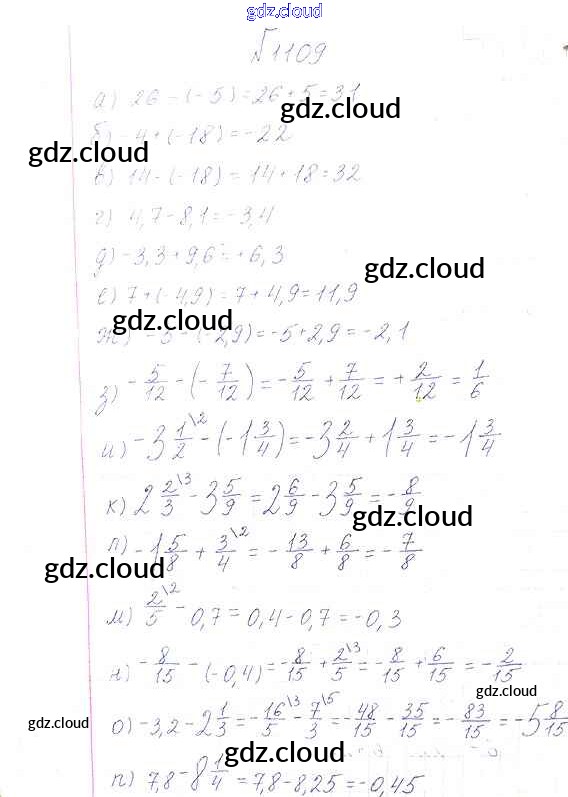 gdz.cloud
№1109
а) 26 - (-5) = 26 + 5 = 31
gdz.cloud
б) -4 + (-18) = -22
gdz.cloud
в) 14 - (-18) = 14 + 18 = 32
г) 4,7 - 8,1 = -3,4
д) -3,3 + 9,6 = +6,3
gdz.cloud
е) 7 + (-4,9) = 7 + 4,9 = 11,9
gdz.cloud
ж) -5 - (-2,9) = -5 + 2,9 = -2,1
з) -5/12 - (-7/12) = -5/12 + 7/12 = +2/12 = 1/6
и) -3 1/2\2 - (-1 3/4) = -3 2/4 + 1 3/4 = -1 3/4
к) 2 2/3\3 - 3 5/9 = 2 6/9 - 3 5/9 = -8/9
gdz.cloud
л) -1 5/8 + 3/4\2 = -13/8 + 6/8 = -7/8
gdz.cloud
м) 2/5\2 - 0,7 = 0,4 - 0,7 = -0,3
н) -8/15 - (-0,4) = -8/15 + 2/5\3 = -8/15 + 6/15 = -2/15
gdz.cloud
gdz.cloud
о) -3,2 - 2 1/3 = -16/5\3 - 7/3\5 = -48/15 - 35/15 = -83/15 = -5 8/15
gdz.cloud
п) 7,8 - 8 1/4 = 7,8 - 8,25 = -0,45